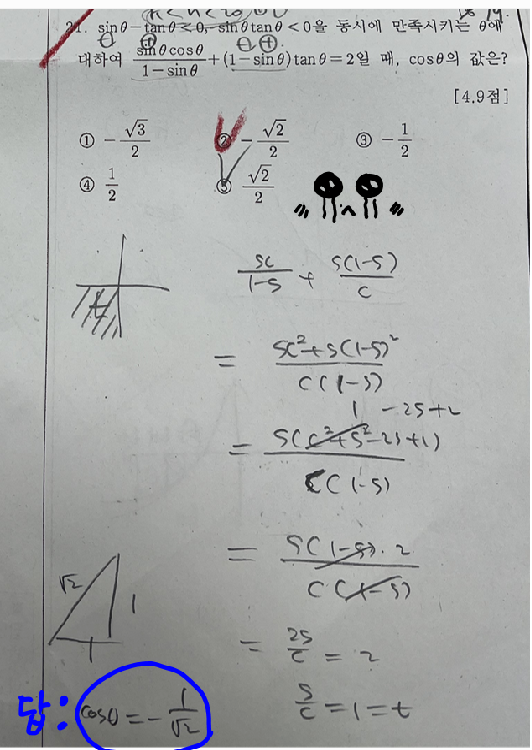 21. sinθ-tanθ<0, sinθtanθ<0을 동시에 만족시키는 θ에
⊖ ⊕ ⊖ ⊕
대하여 sinθcosθ/(1-sinθ)+(1-sinθ)tanθ=2일 때, cosθ의 값은?
[4.9점]
① -√3/2 ② -√2/2 ③ -1/2
④ 1/2 ⑤ √2/2
sc/(1-s) + s(1-s)/c
= (sc²+s(1-s)²)/(c(1-s))
1 -2s+2
= s(c²+s²-2s+1)/(c(1-s))
= s(1-s)·2/(c(1-s))
√2 1
1
= 2s/c = 2
s/c = 1 = t
답: cosθ = -1/√2